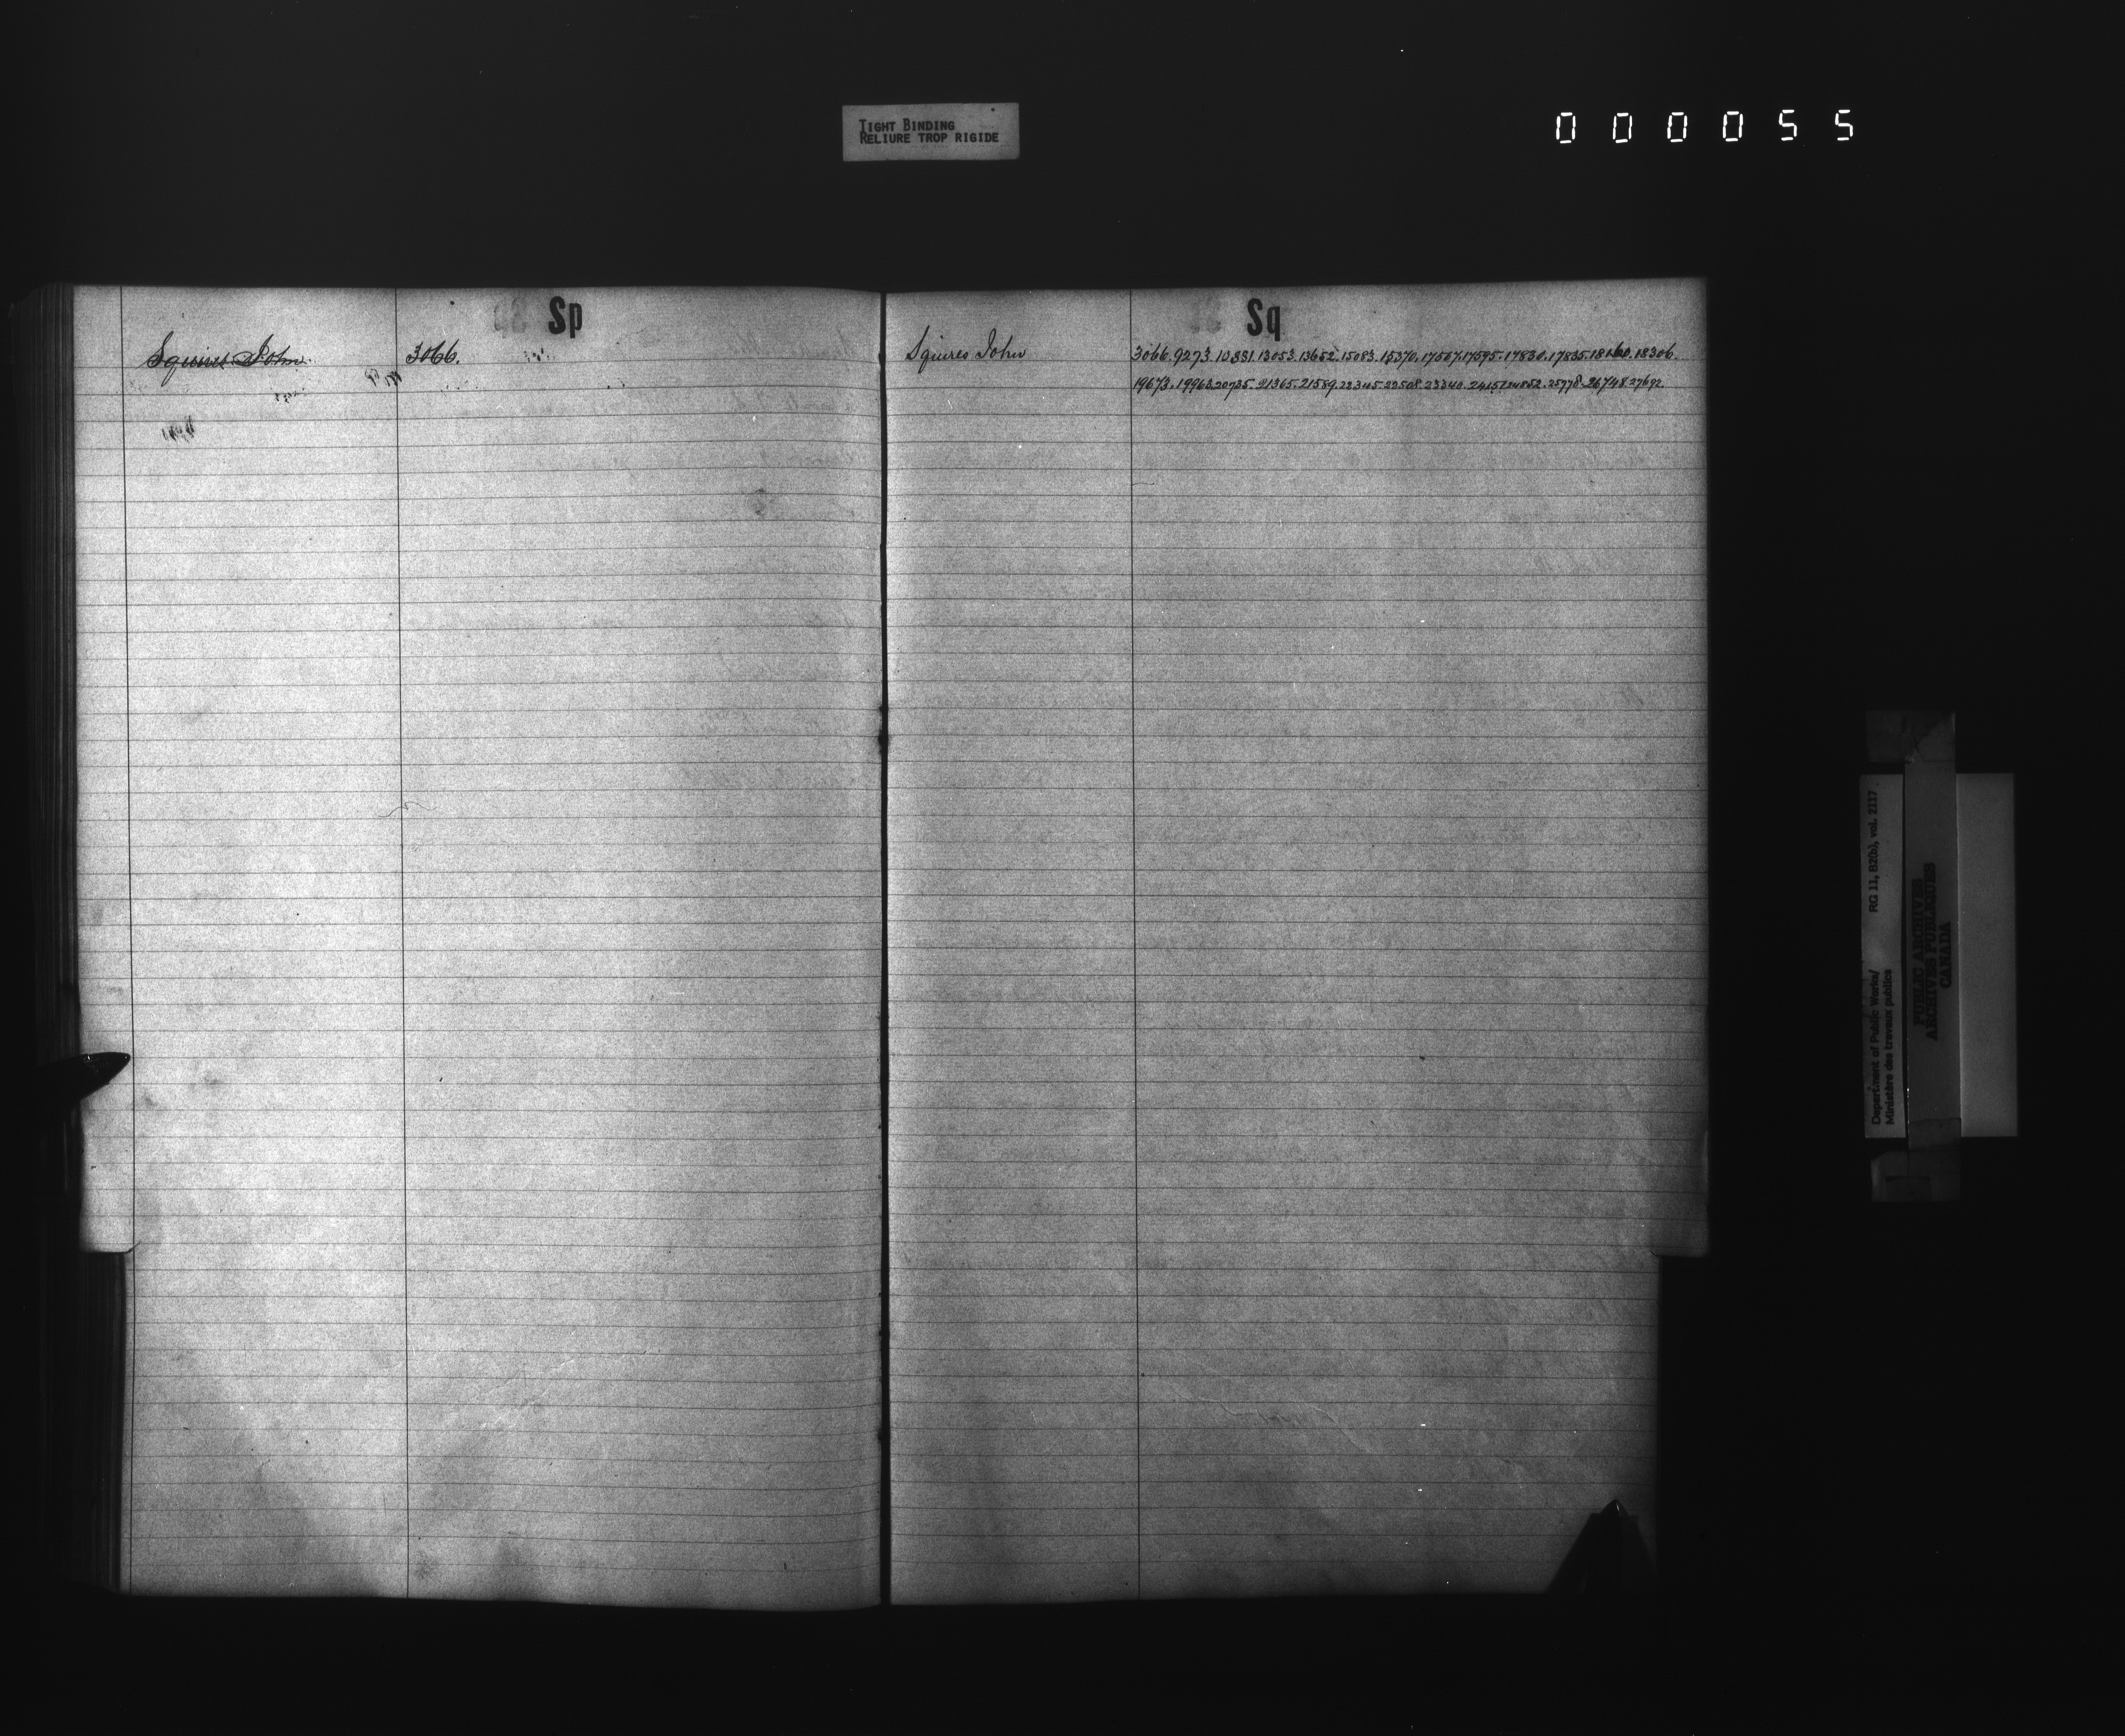 TIGHT BINDING
RELIURE TROP RIGIDE
000055
Sp
Squires John. 3066.
Sq
Squires John 3066. 9273. 10881. 13053. 13652. 15083. 15370. 17567. 17595. 17830. 17835. 18160. 18306.
19673. 19963. 20735. 21365. 21559. 22345. 22508. 23340. 24157. 24852. 25778. 26748. 27692.
Department of Public Works/ RG 11, B2(b), vol. 2117
Ministère des travaux publics
PUBLIC ARCHIVES
ARCHIVES PUBLIQUES
CANADA